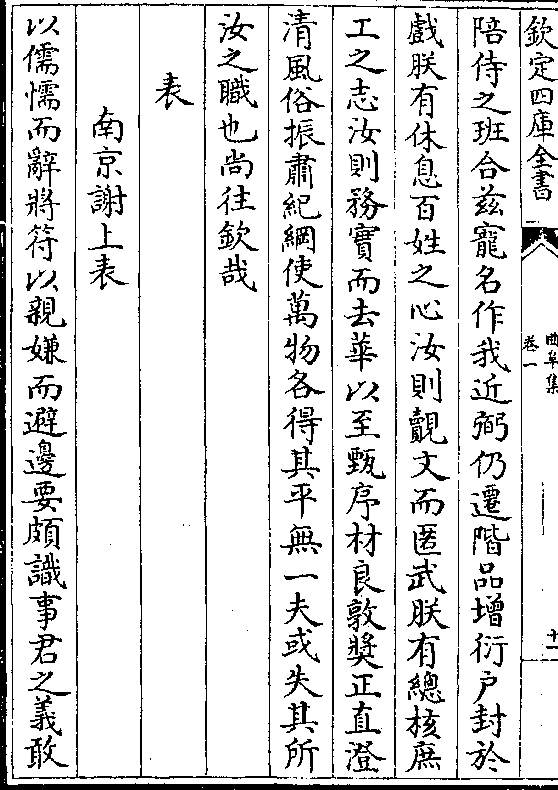 欽定四庫全書
曲阜集
卷一
十一
陪侍之班合茲寵名作我近弼仍遷階品增衍户封於
戲朕有休息百姓之心汝則覿文而匿武朕有總核庶
工之志汝則務實而去華以至甄序材良敦奬正直澄
清風俗振肅紀綱使萬物各得其平無一夫或失其所
汝之職也尚往欽哉
表
南京謝上表
以儒懦而辭將符以親嫌而避邊要頗識事君之義敢